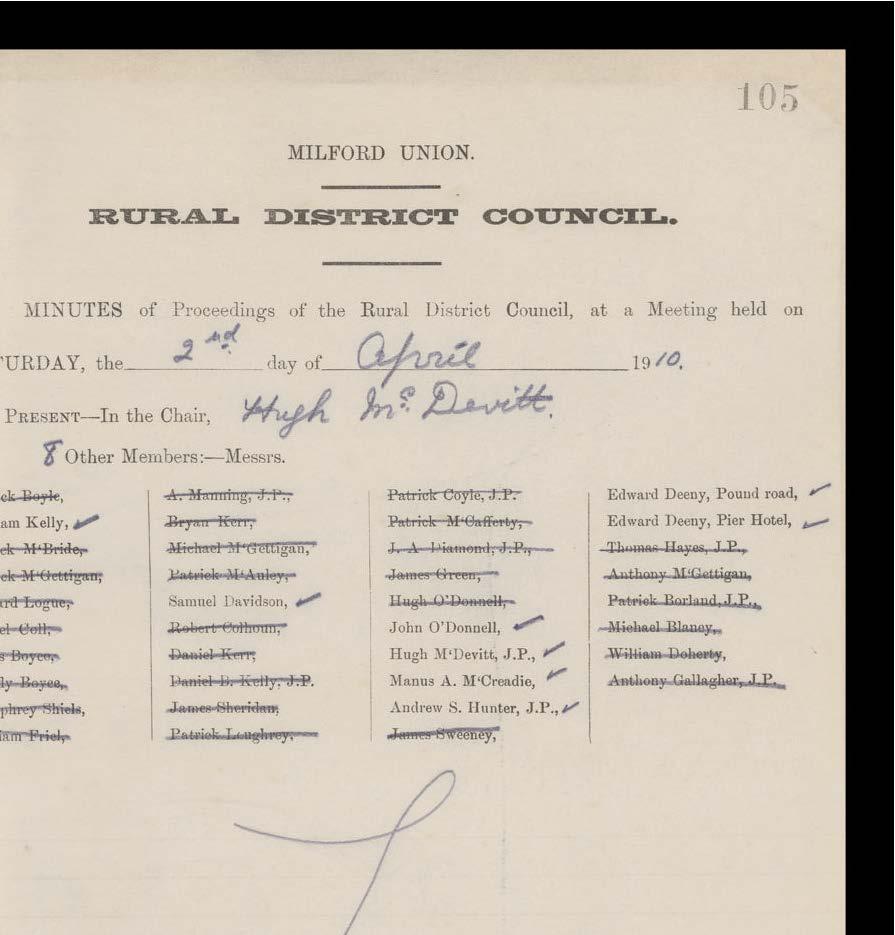 105
MILFORD UNION.
RURAL DISTRICT COUNCIL.
MINUTES of Proceedings of the Rural District Council, at a Meeting held on
TURDAY, the 2nd day of April 1910.
PRESENT—In the Chair, Hugh McDevitt.
8 Other Members:—Messrs.
ck Boyle,
am Kelly,
ck M‘Bride,
ck M‘Gettigan,
ard Logue,
el Coll,
s Boyce,
ly Boyce,
phrey Shiels,
iam Friel,
A. Manning, J.P.,
Bryan Kerr,
Michael M‘Gettigan,
Patrick M‘Auley,
Samuel Davidson,
Robert Colhoun,
Daniel Kerr,
Daniel B. Kelly, J.P.
James Sheridan,
Patrick Loughrey,
Patrick Coyle, J.P.
Patrick M‘Cafferty,
J. A. Diamond, J.P.,
James Green,
Hugh O’Donnell,
John O’Donnell,
Hugh M‘Devitt, J.P.,
Manus A. M‘Creadie,
Andrew S. Hunter, J.P.,
James Sweeney,
Edward Deeny, Pound road,
Edward Deeny, Pier Hotel,
Thomas Hayes, J.P.,
Anthony M‘Gettigan,
Patrick Borland, J.P.,
Michael Blaney,
William Doherty,
Anthony Gallagher, J.P.